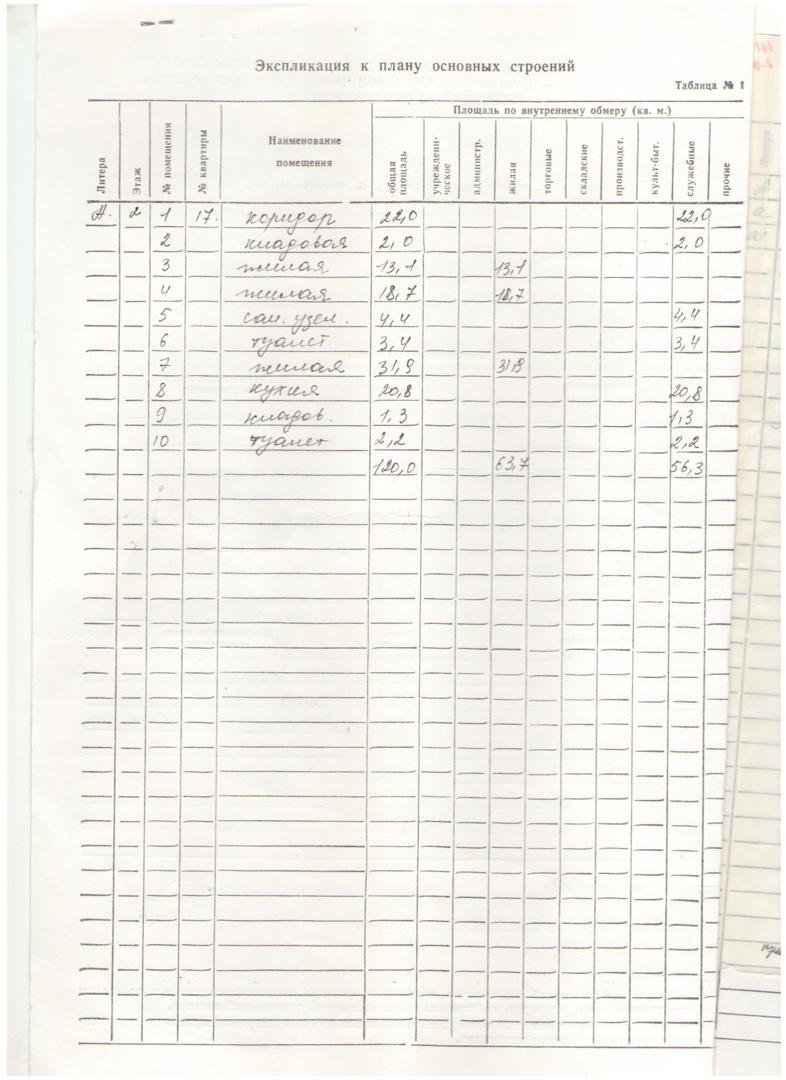 Экспликация к плану основных строений
Таблица № 1
Литера Этаж № помещения № квартиры Наименование помещения Площадь по внутреннему обмеру (кв. м.)
общая площадь учреждени-ческое администр. жилая торговые складские производст. культ-быт. служебные прочие
А. 2 1 17. коридор 22,0 22,0
2 кладовая 2,0 2,0
3 жилая 13,1 13,1
4 жилая 18,7 18,7
5 сан. узел. 4,4 4,4
6 туалет 3,4 3,4
7 жилая 31,9 31,9
8 кухня 20,8 20,8
9 кладов. 1,3 1,3
10 туалет 2,2 2,2
120,0 63,7 56,3